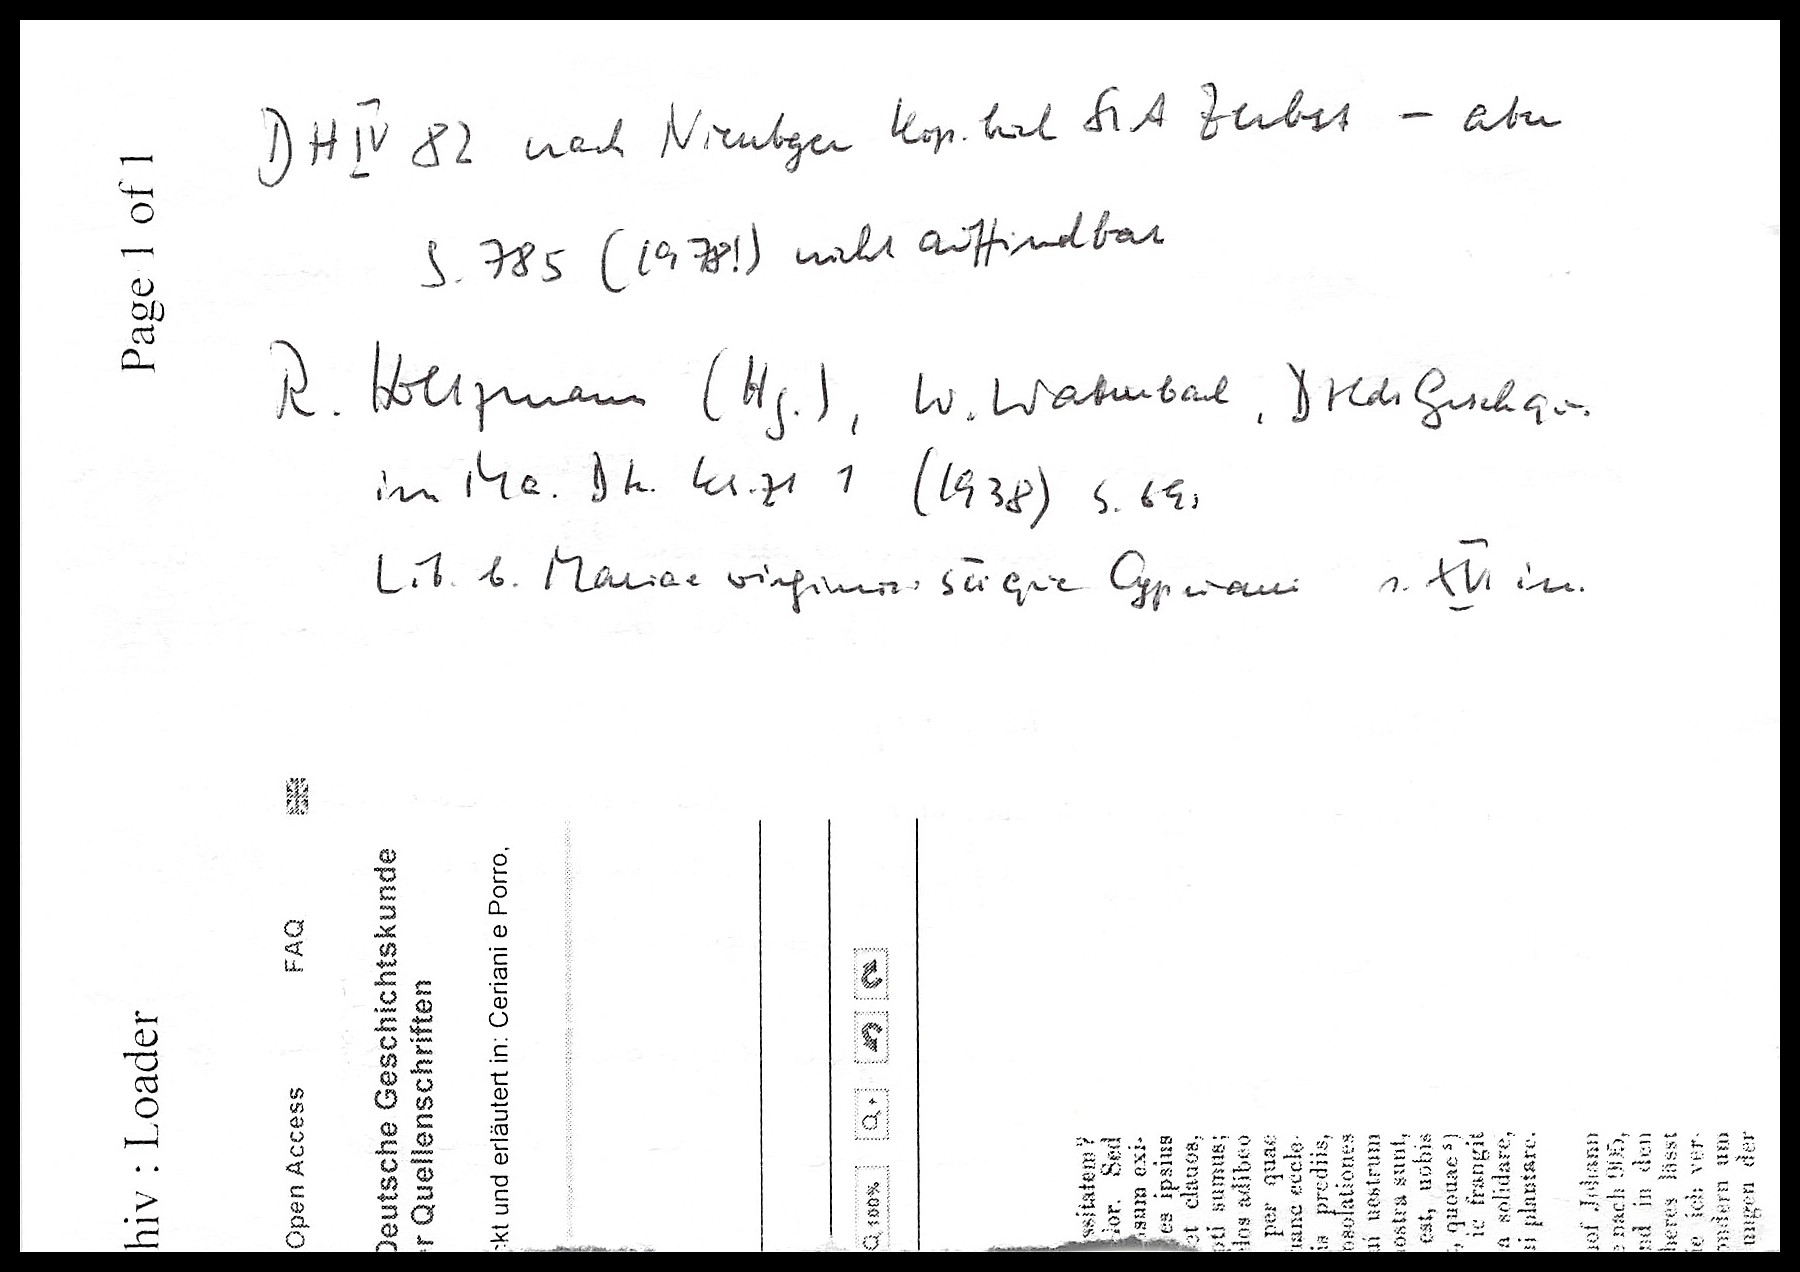 DH IV 82 nach Nienbger Kop. StA Zerbst – aber
S. 785 (1978!) nicht auffindbar
R. Holtzmann (Hg.), W. Wattenbach, Dtlds Geschqu.
im Ma. Dt. 1 (1938) S. 69
Lib. b. Mariae virginis Cypriani s. XVI in.
Page 1 of 1
hiv : Loader
Open Access FAQ
Deutsche Geschichtskunde
r Quellenschriften
kt und erläutert in: Ceriani e Porro,
100%
ssitatem?
ior. Sed
osam exi-
es ipsius
et clauos,
pti sumus;
elos adibeo
per quae
eccle-
prediis,
nsolationes
uestrum
ostra sunt,
est, nobis
quouae 5)
ic frangit
a solidare,
plantare.
of Johann
nach 905,
nd in den
heres lässt
ie ich ver-
ondern um
ungen der